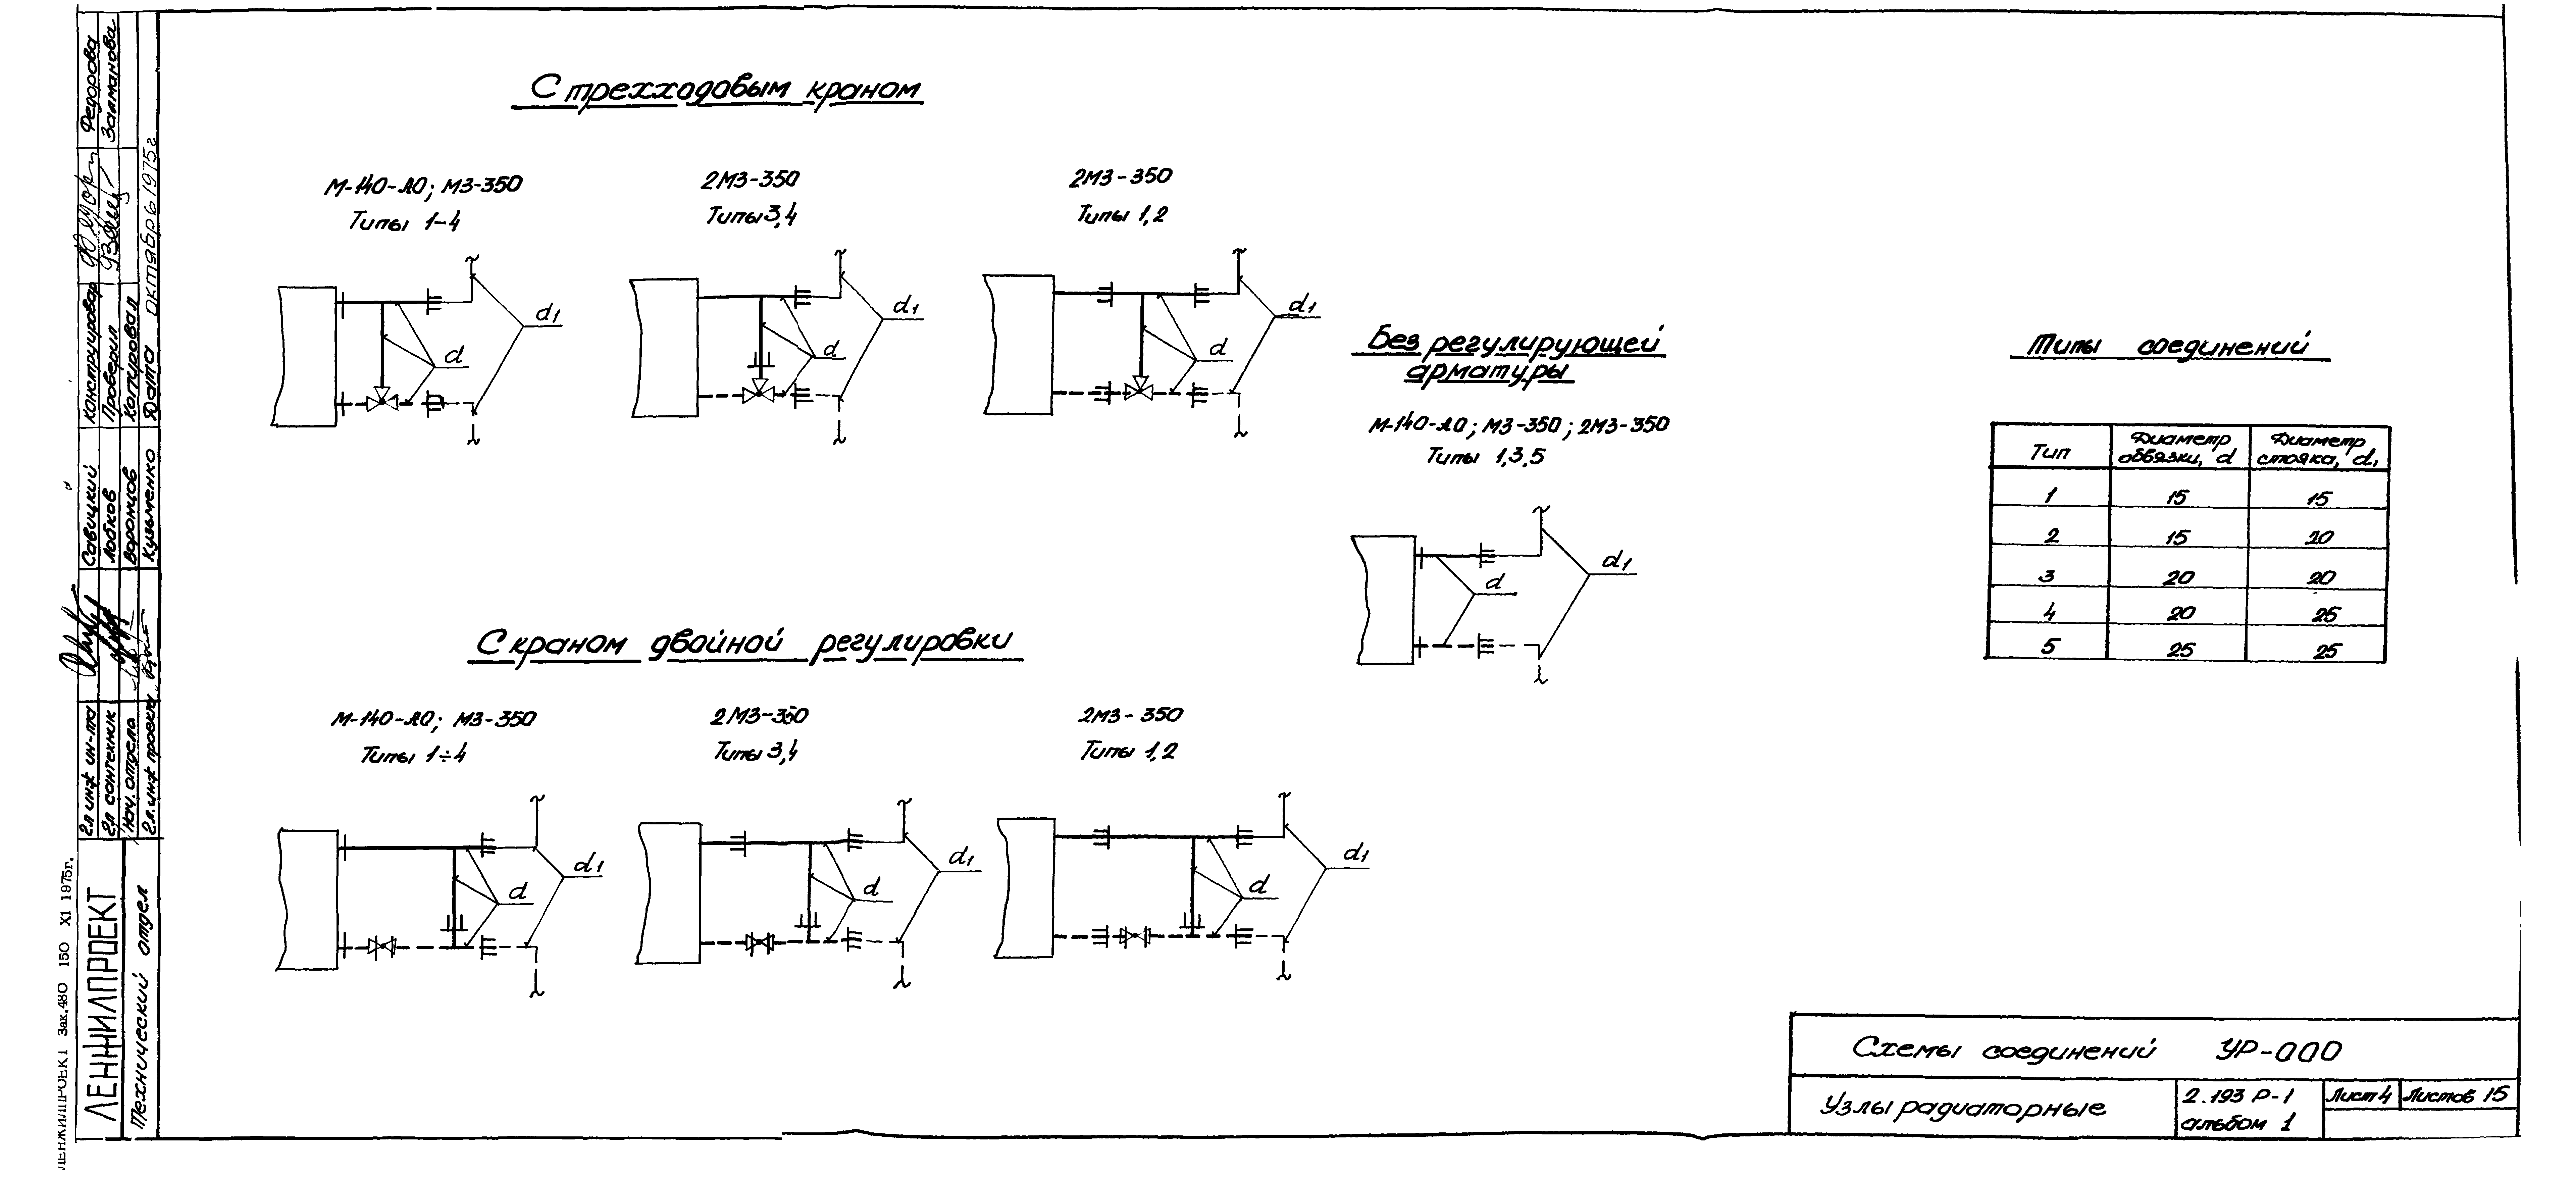 С трехходовым краном
М-140-АО; МЗ-350
Типы 1-4
d1
d
2МЗ-350
Типы 3,4
d1
d
2МЗ-350
Типы 1,2
d1
d
Без регулирующей
арматуры
М-140-АО; МЗ-350; 2МЗ-350
Типы 1,3,5
d1
d
С краном двойной регулировки
М-140-АО; МЗ-350
Типы 1÷4
d1
d
2МЗ-350
Типы 3,4
d1
d
2МЗ-350
Типы 1,2
d1
d
Типы соединений
Тип
Диаметр
обвязки, d
Диаметр
стояка, d1
1 15 15
2 15 20
3 20 20
4 20 25
5 25 25
Схемы соединений УР-000
Узлы радиаторные
2.193 Р-1
альбом 1
Лист 4
Листов 15
ЛЕНЖИЛПРОЕКТ Зак.480 150 XI 1975г.
ЛЕНЖИЛПРОЕКТ
Технический отдел
Гл инж ин-та Савицкий Конструировал Федорова
Гл сантехник Лобков Проверил Залманова
Нач. отдела Воронцов Копировал
Гл. инж проекта Кузьменко Дата октябрь 1975г